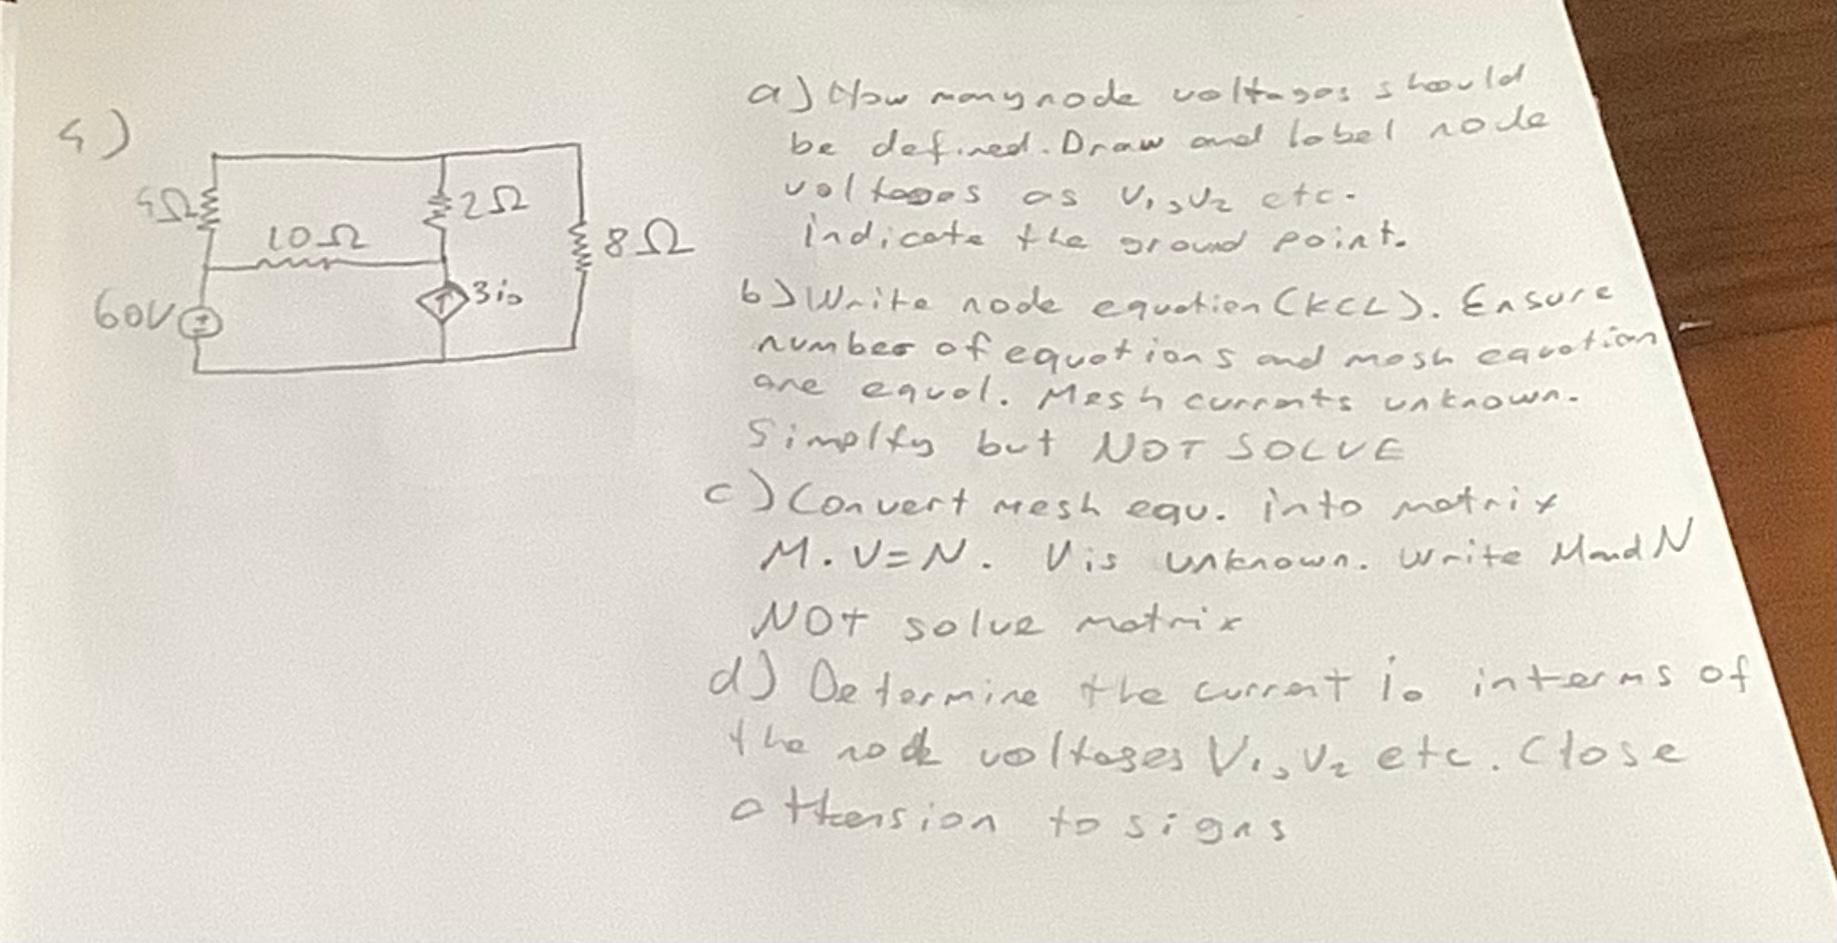 4)
4Ω
2Ω
10Ω
8Ω
3io
60V
a) How many node voltages should
be defined. Draw and label node
voltages as V1, V2 etc.
indicate the ground point.
b) Write node equation (KCL). Ensure
number of equations and mesh equation
are equal. Mesh currents unknown.
Simplfy but NOT SOLVE
c) Convert mesh equ. into matrix
M.V=N. V is unknown. Write M and N
NOT solve matrix
d) Determine the current io interms of
the node voltages V1, V2 etc. Close
attension to signs